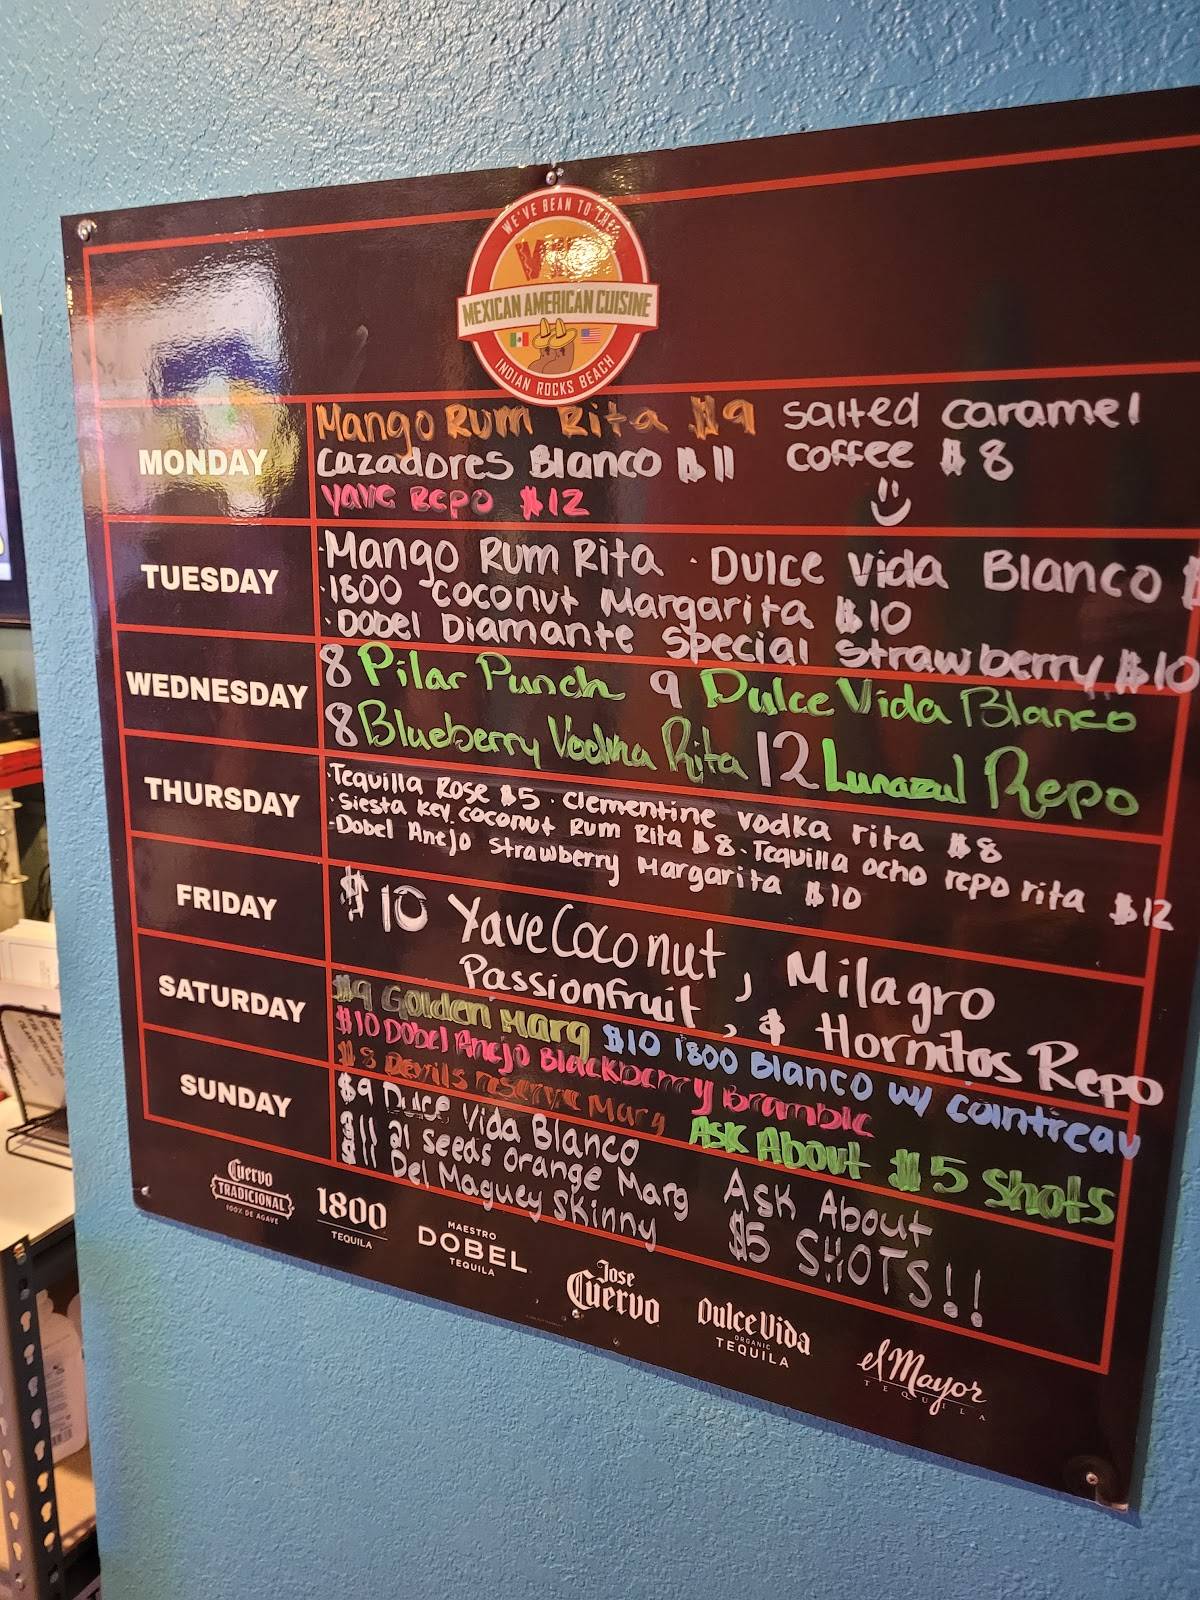 WE'VE BEAN TO THE
MEXICAN AMERICAN CUISINE
INDIAN ROCKS BEACH
MONDAY
Mango Rum Rita $9 salted caramel
cazadores Blanco $11 coffee $8
Yave Repo $12
TUESDAY
·Mango Rum Rita · Dulce Vida Blanco
·1800 coconut Margarita $10
·Dobel Diamante special strawberry $10
WEDNESDAY
8 Pilar Punch 9 Dulce Vida Blanco
8 Blueberry Vodka Rita 12 Lunazul Repo
THURSDAY
·Tequilla Rose $5 · clementine vodka rita $8
·Siesta Key coconut Rum Rita $8 · Tequilla ocho repo rita $12
·Dobel Anejo strawberry Margarita $10
FRIDAY
$10 Yave Coconut, Milagro
Passionfruit, & Hornitos Repo
SATURDAY
$9 Golden Marg $10 1800 Blanco w/ cointreau
$10 Dobel Anejo Blackberry Bramble
$8 Devils reserve Marg Ask About $5 shots
SUNDAY
$9 Dulce Vida Blanco
$11 21 seeds orange Marg Ask About
$11 Del Maguey Skinny $5 SHOTS!!
Cuervo
TRADICIONAL
100% DE AGAVE
1800
TEQUILA
MAESTRO
DOBEL
TEQUILA
Jose
Cuervo
Dulce Vida
ORGANIC
TEQUILA
el Mayor
TEQUILA